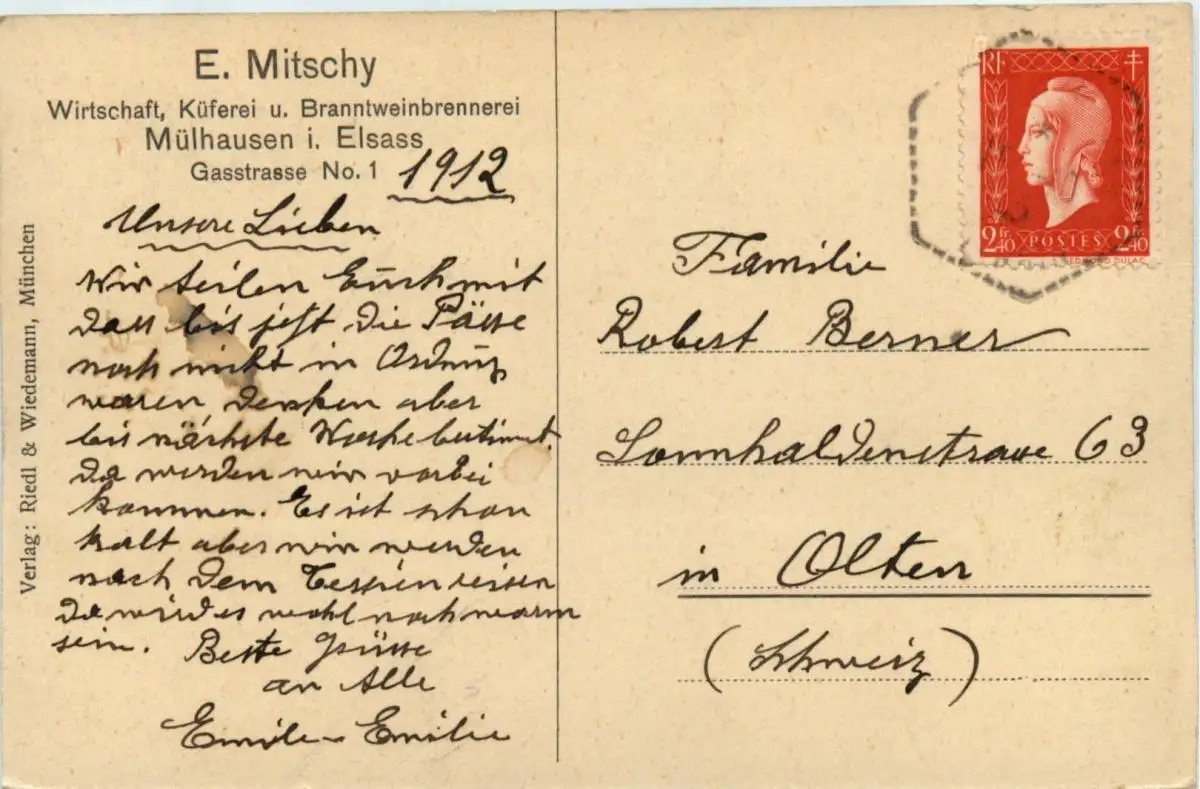 E. Mitschy
Wirtschaft, Küferei u. Branntweinbrennerei
Mülhausen i. Elsass
Gasstrasse No. 1
1912
Unsere Lieben
Wir teilen Euch mit
dass bis jetzt die Pässe
noch nicht in Ordnung
waren denken aber
bis nächste Woche bestimmt
da werden wir vorbei
kommen. Es ist schon
kalt aber wir werden
nach dem Tessin reisen
da wird es wohl noch warm
sein. Beste Grüsse
an Alle
Emile - Emilie
Verlag: Riedl & Wiedemann, München
RF
2fr40 POSTES 2fr40
EDMOND DULAC
Familie
Robert Berner
Sonnhaldenstrasse 63
in Olten
(Schweiz)